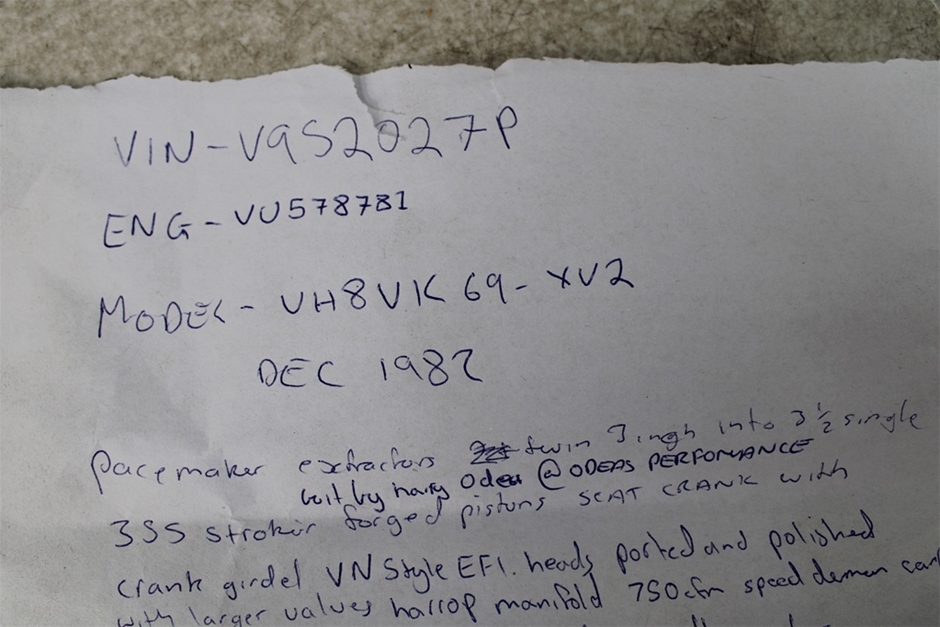 VIN-V9S2027P
ENG-VU578781
MODEL-VH8VK69-XV2
DEC 1982
pacemaker extractors twin 3 ingh into 3 1/2 single
boit by harry Odea @ODEAS PERFORMANCE
355 stroker forged pistons SCAT CRANK with
crank girdel VN Style EFI. heads ported and polished
with larger valves harrop manifold 750cfm speed demon